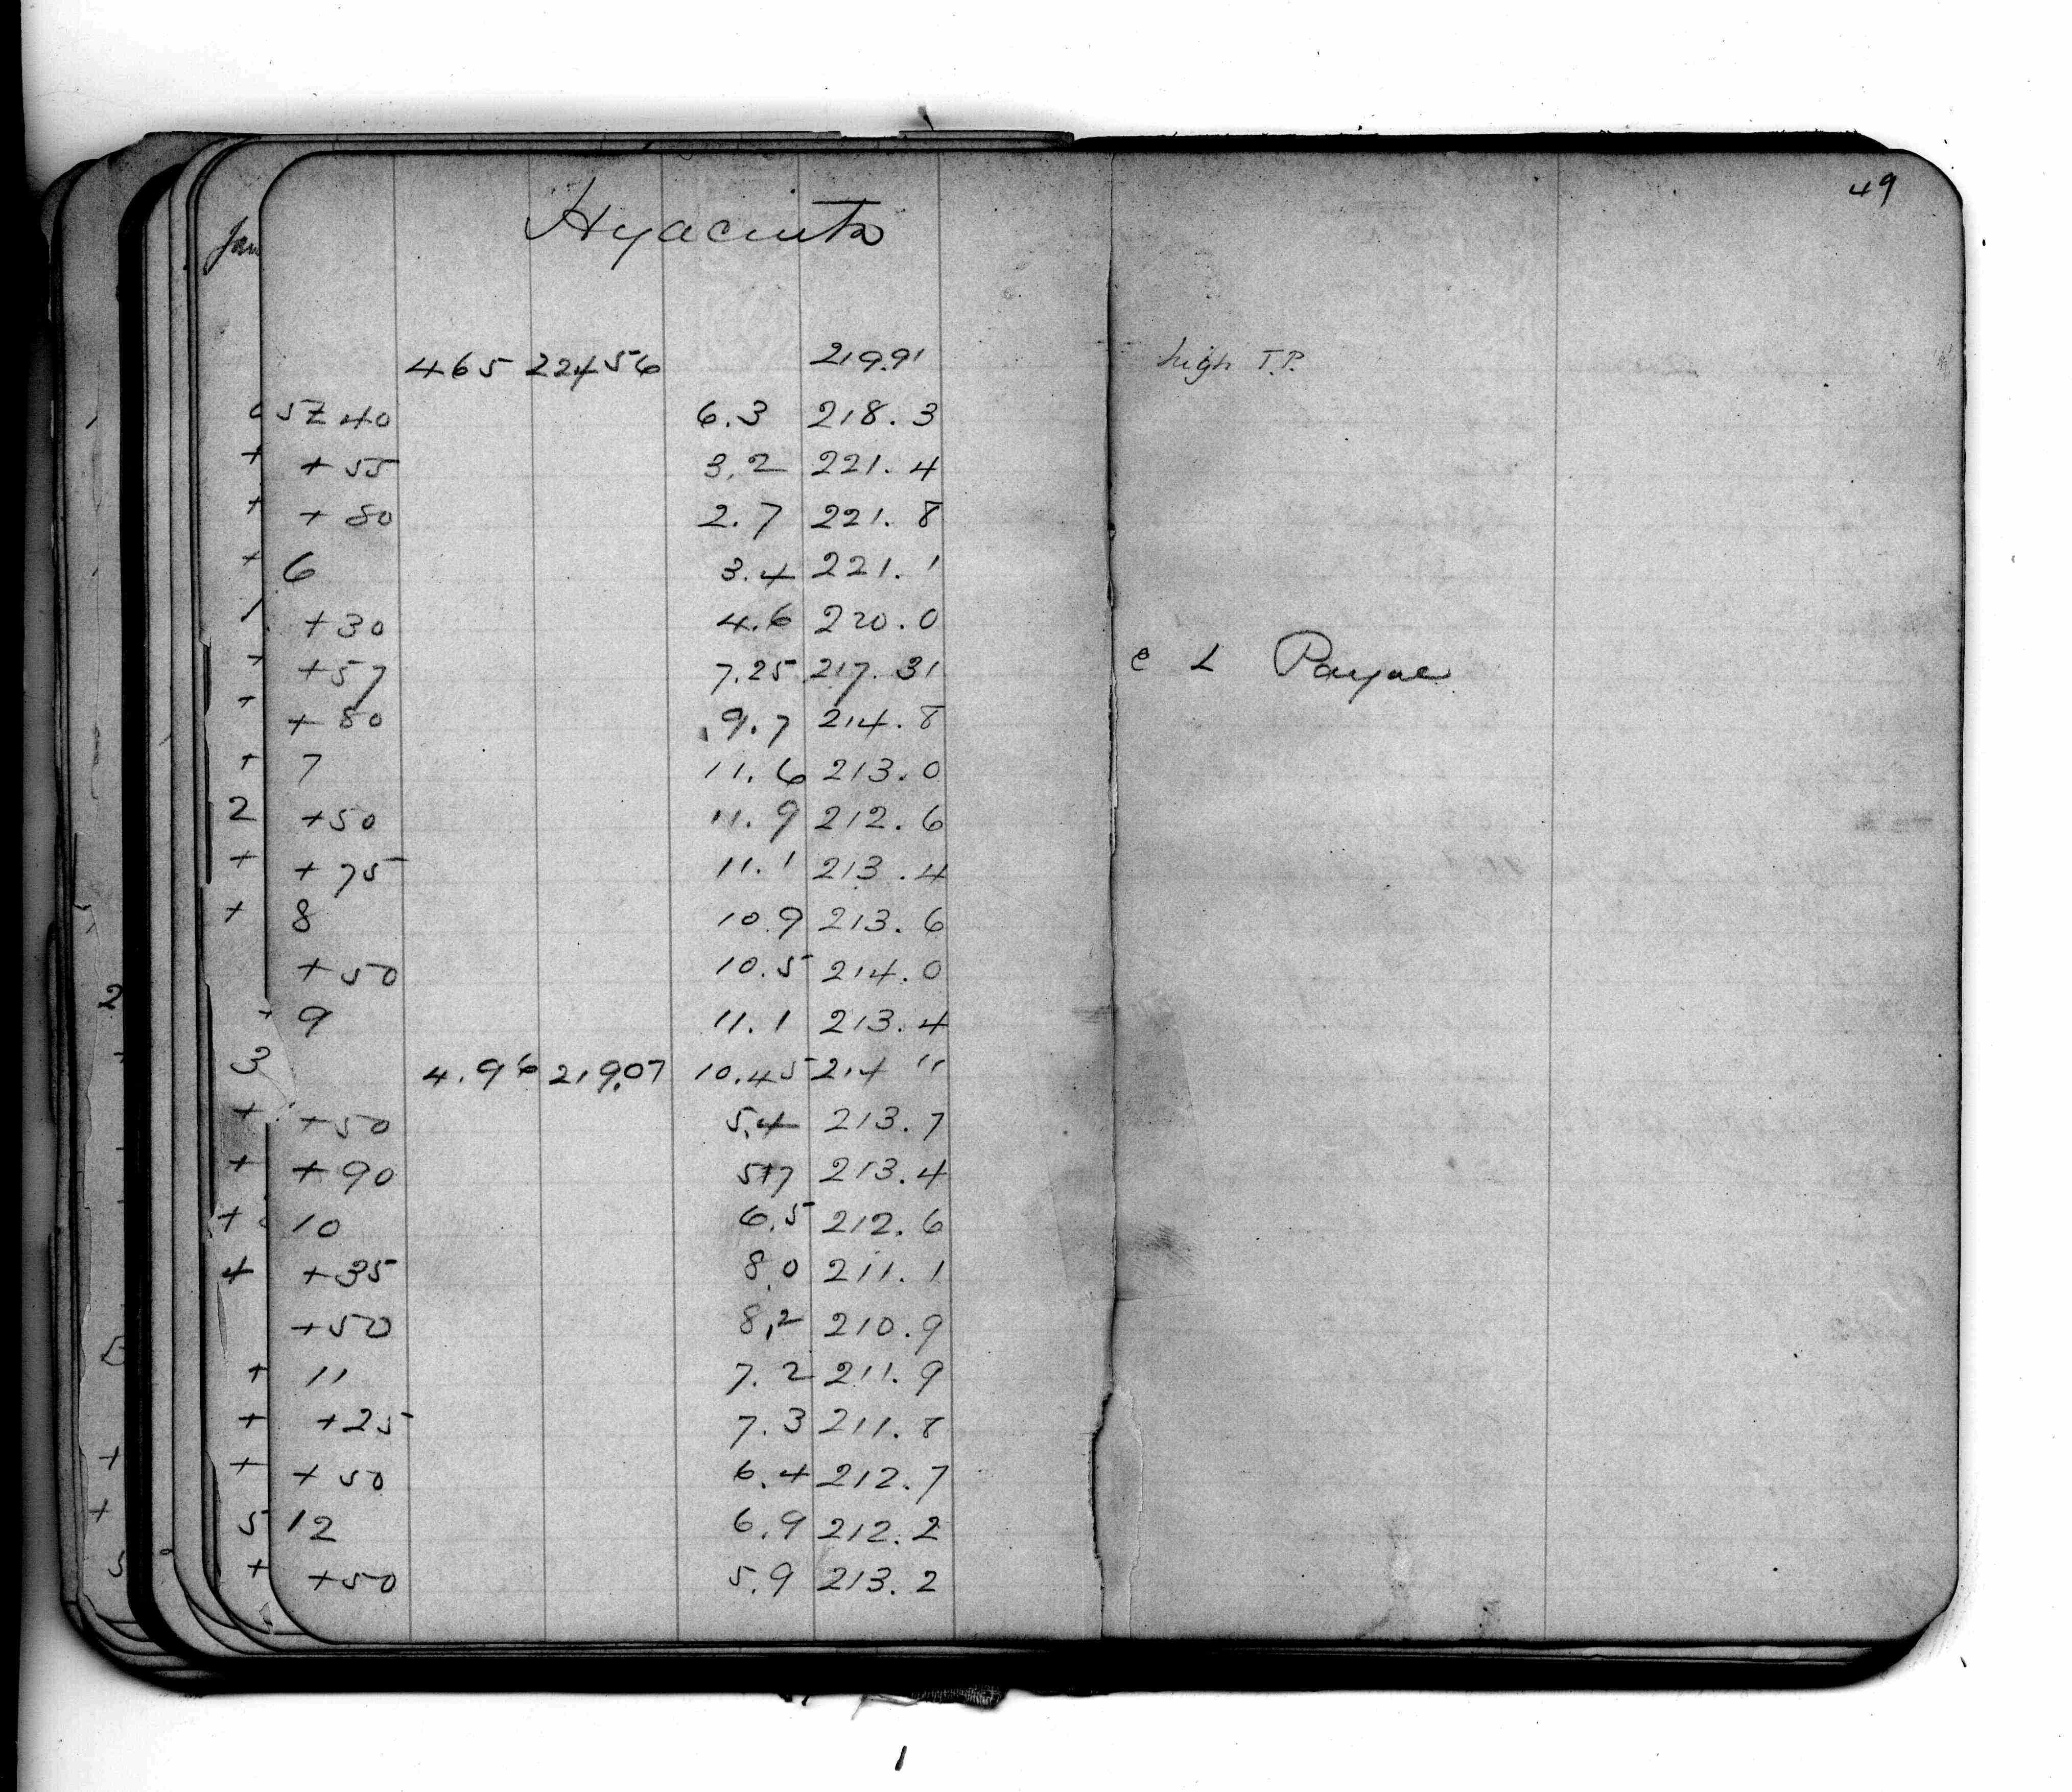 49
Hyacinth
465 22456 219.91 high T.P.
5+40 6.3 218.3
+55 3.2 221.4
+80 2.7 221.8
6 3.4 221.1
+30 4.6 220.0
+57 7.25 217.31 C L Payne
+80 9.7 214.8
7 11.6 213.0
+50 11.9 212.6
+75 11.1 213.4
8 10.9 213.6
+50 10.5 214.0
9 11.1 213.4
4.96 219.07 10.45 214 11
+50 5.4 213.7
+90 5.7 213.4
10 6.5 212.6
+35 8.0 211.1
+50 8.2 210.9
11 7.2 211.9
+25 7.3 211.8
+50 6.4 212.7
12 6.9 212.2
+50 5.9 213.2